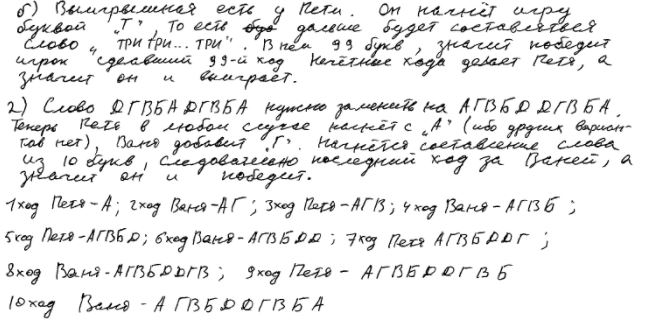 б) Выигрышная есть у Пети. Он начнёт игру
буквой "Т", то есть дальше будет составляться
слово "ТРИТРИ...ТРИ". В нём 99 букв, значит победит
игрок сделавший 99-й ход Нечётные хода делает Петя, а
значит он и выиграет.
2) Слово DГВБАDГВБА нужно заменить на АГВБDDГВБА.
Теперь Петя в любом случае начнёт с "А" (ибо других вариан-
тов нет), Ваня добавит "Г". Начнётся составление слова
из 10 букв, следовательно последний ход за Ваней, а
значит он и победит.
1ход Петя-А; 2ход Ваня-АГ; 3ход Петя-АГВ; 4ход Ваня-АГВБ;
5ход Петя-АГВБD; 6ход Ваня-АГВБDD; 7ход Петя АГВБDDГ;
8ход Ваня-АГВБDDГВ; 9ход Петя- АГВБDDГВБ
10ход Ваня-АГВБDDГВБА